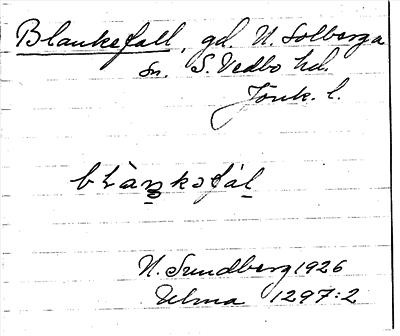 Blankefall, gd. N. Solberga
sn. S. Vedbo hd.
Jönk. l.
blàŋkəfàl
N. Sundberg 1926
Ulma 1297:2